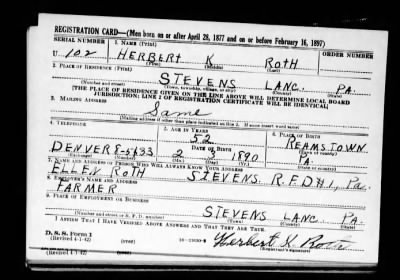 REGISTRATION CARD—(Men born on or after April 28, 1877 and on or before February 16, 1897)
SERIAL NUMBER 1. NAME (Print) ORDER NUMBER
U 102 HERBERT K ROTH
(First) (Middle) (Last)
2. PLACE OF RESIDENCE (Print)
STEVENS LANC. PA.
(Number and street) (Town, township, village, or city) (County) (State)
[THE PLACE OF RESIDENCE GIVEN ON THE LINE ABOVE WILL DETERMINE LOCAL BOARD
JURISDICTION; LINE 2 OF REGISTRATION CERTIFICATE WILL BE IDENTICAL]
3. MAILING ADDRESS
Same
[Mailing address if other than place indicated on line 2. If same insert word same]
4. TELEPHONE 5. AGE IN YEARS 6. PLACE OF BIRTH
52 REAMSTOWN
DATE OF BIRTH (Town or county)
DENVER 8-5433 2 3 1890 PA.
(Exchange) (Number) (Mo.) (Day) (Yr.) (State or country)
7. NAME AND ADDRESS OF PERSON WHO WILL ALWAYS KNOW YOUR ADDRESS
ELLEN ROTH STEVENS R.F.D#1, Pa.
8. EMPLOYER'S NAME AND ADDRESS
FARMER
9. PLACE OF EMPLOYMENT OR BUSINESS
STEVENS LANC. PA.
(Number and street or R. F. D. number) (Town) (County) (State)
I AFFIRM THAT I HAVE VERIFIED ABOVE ANSWERS AND THAT THEY ARE TRUE.
D. S. S. Form 1
(Revised 4-1-42) (over) Herbert K Roth
(Registrant's signature)